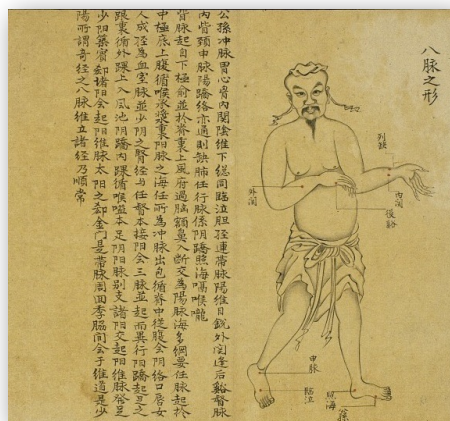 八脉之形
列缺
内関
後谿
外関
申脉
臨泣
照海
公孫冲脉胃心胷内関陰維下総同臨泣胆经連帯脉陽維目銳外関逢后谿督脉
内眥頸申脉陽蹻絡亦通列缺肺任行脉係阴蹻照海嗝喉嚨
督脉起自下極俞並於脊裏上風府過腦額鼻入断交為陽脉海多綱要任脉起於
中極底上腹循喉承漿裏阳脉之海任所為冲脉出包循脊中從腹会阴络口唇女
人成経為血室脉並少阴之腎经与任督本接阳会三脉並起而異行阳蹻起足之
跟裏循外踝上入風池阴蹻内踝循喉嗌本足阴阳脉别支諸阳交起阳維脉發足
少阳築賓郄諸阳会起阳維脉太阳之郄金门是帯脉周回季脇间会于維道是少
陽所謂奇经之八脉維立諸经乃順常